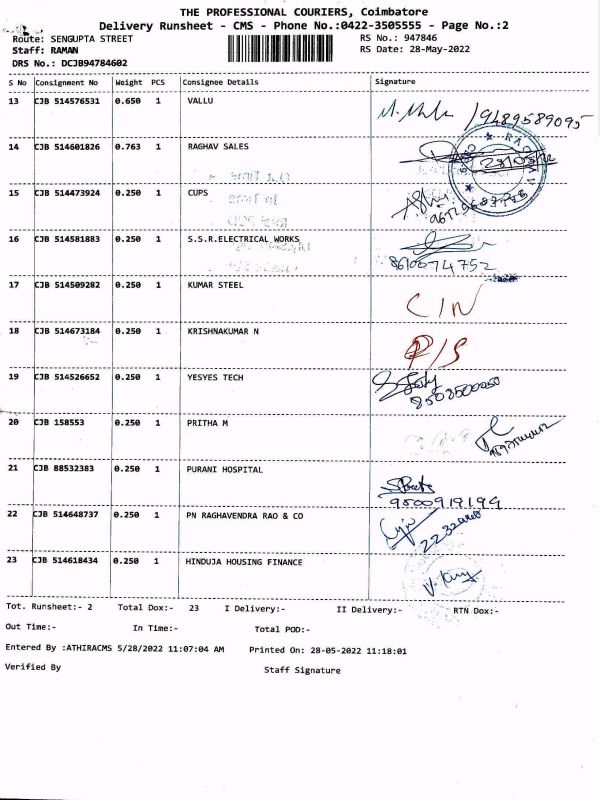 THE PROFESSIONAL COURIERS, Coimbatore
Delivery Runsheet - CMS - Phone No.:0422-3505555 - Page No.:2
Route: SENGUPTA STREET RS No.: 947846
Staff: RAMAN RS Date: 28-May-2022
DRS No.: DCJB94784602
S No Consignment No Weight PCS Consignee Details Signature
13 CJB 514576531 0.650 1 VALLU /9489589095
14 CJB 514601826 0.763 1 RAGHAV SALES
15 CJB 514473924 0.250 1 CUPS
16 CJB 514581883 0.250 1 S.S.R.ELECTRICAL WORKS 8610674752
17 CJB 514509282 0.250 1 KUMAR STEEL C/N
18 CJB 514673184 0.250 1 KRISHNAKUMAR N P/S
19 CJB 514526652 0.250 1 YESYES TECH
20 CJB 158553 0.250 1 PRITHA M
21 CJB 88532383 0.250 1 PURANI HOSPITAL
9500919194
22 CJB 514648737 0.250 1 PN RAGHAVENDRA RAO & CO
23 CJB 514618434 0.250 1 HINDUJA HOUSING FINANCE
Tot. Runsheet:- 2 Total Dox:- 23 I Delivery:- II Delivery:- RTN Dox:-
Out Time:- In Time:- Total POD:-
Entered By :ATHIRACMS 5/28/2022 11:07:04 AM Printed On: 28-05-2022 11:18:01
Verified By Staff Signature